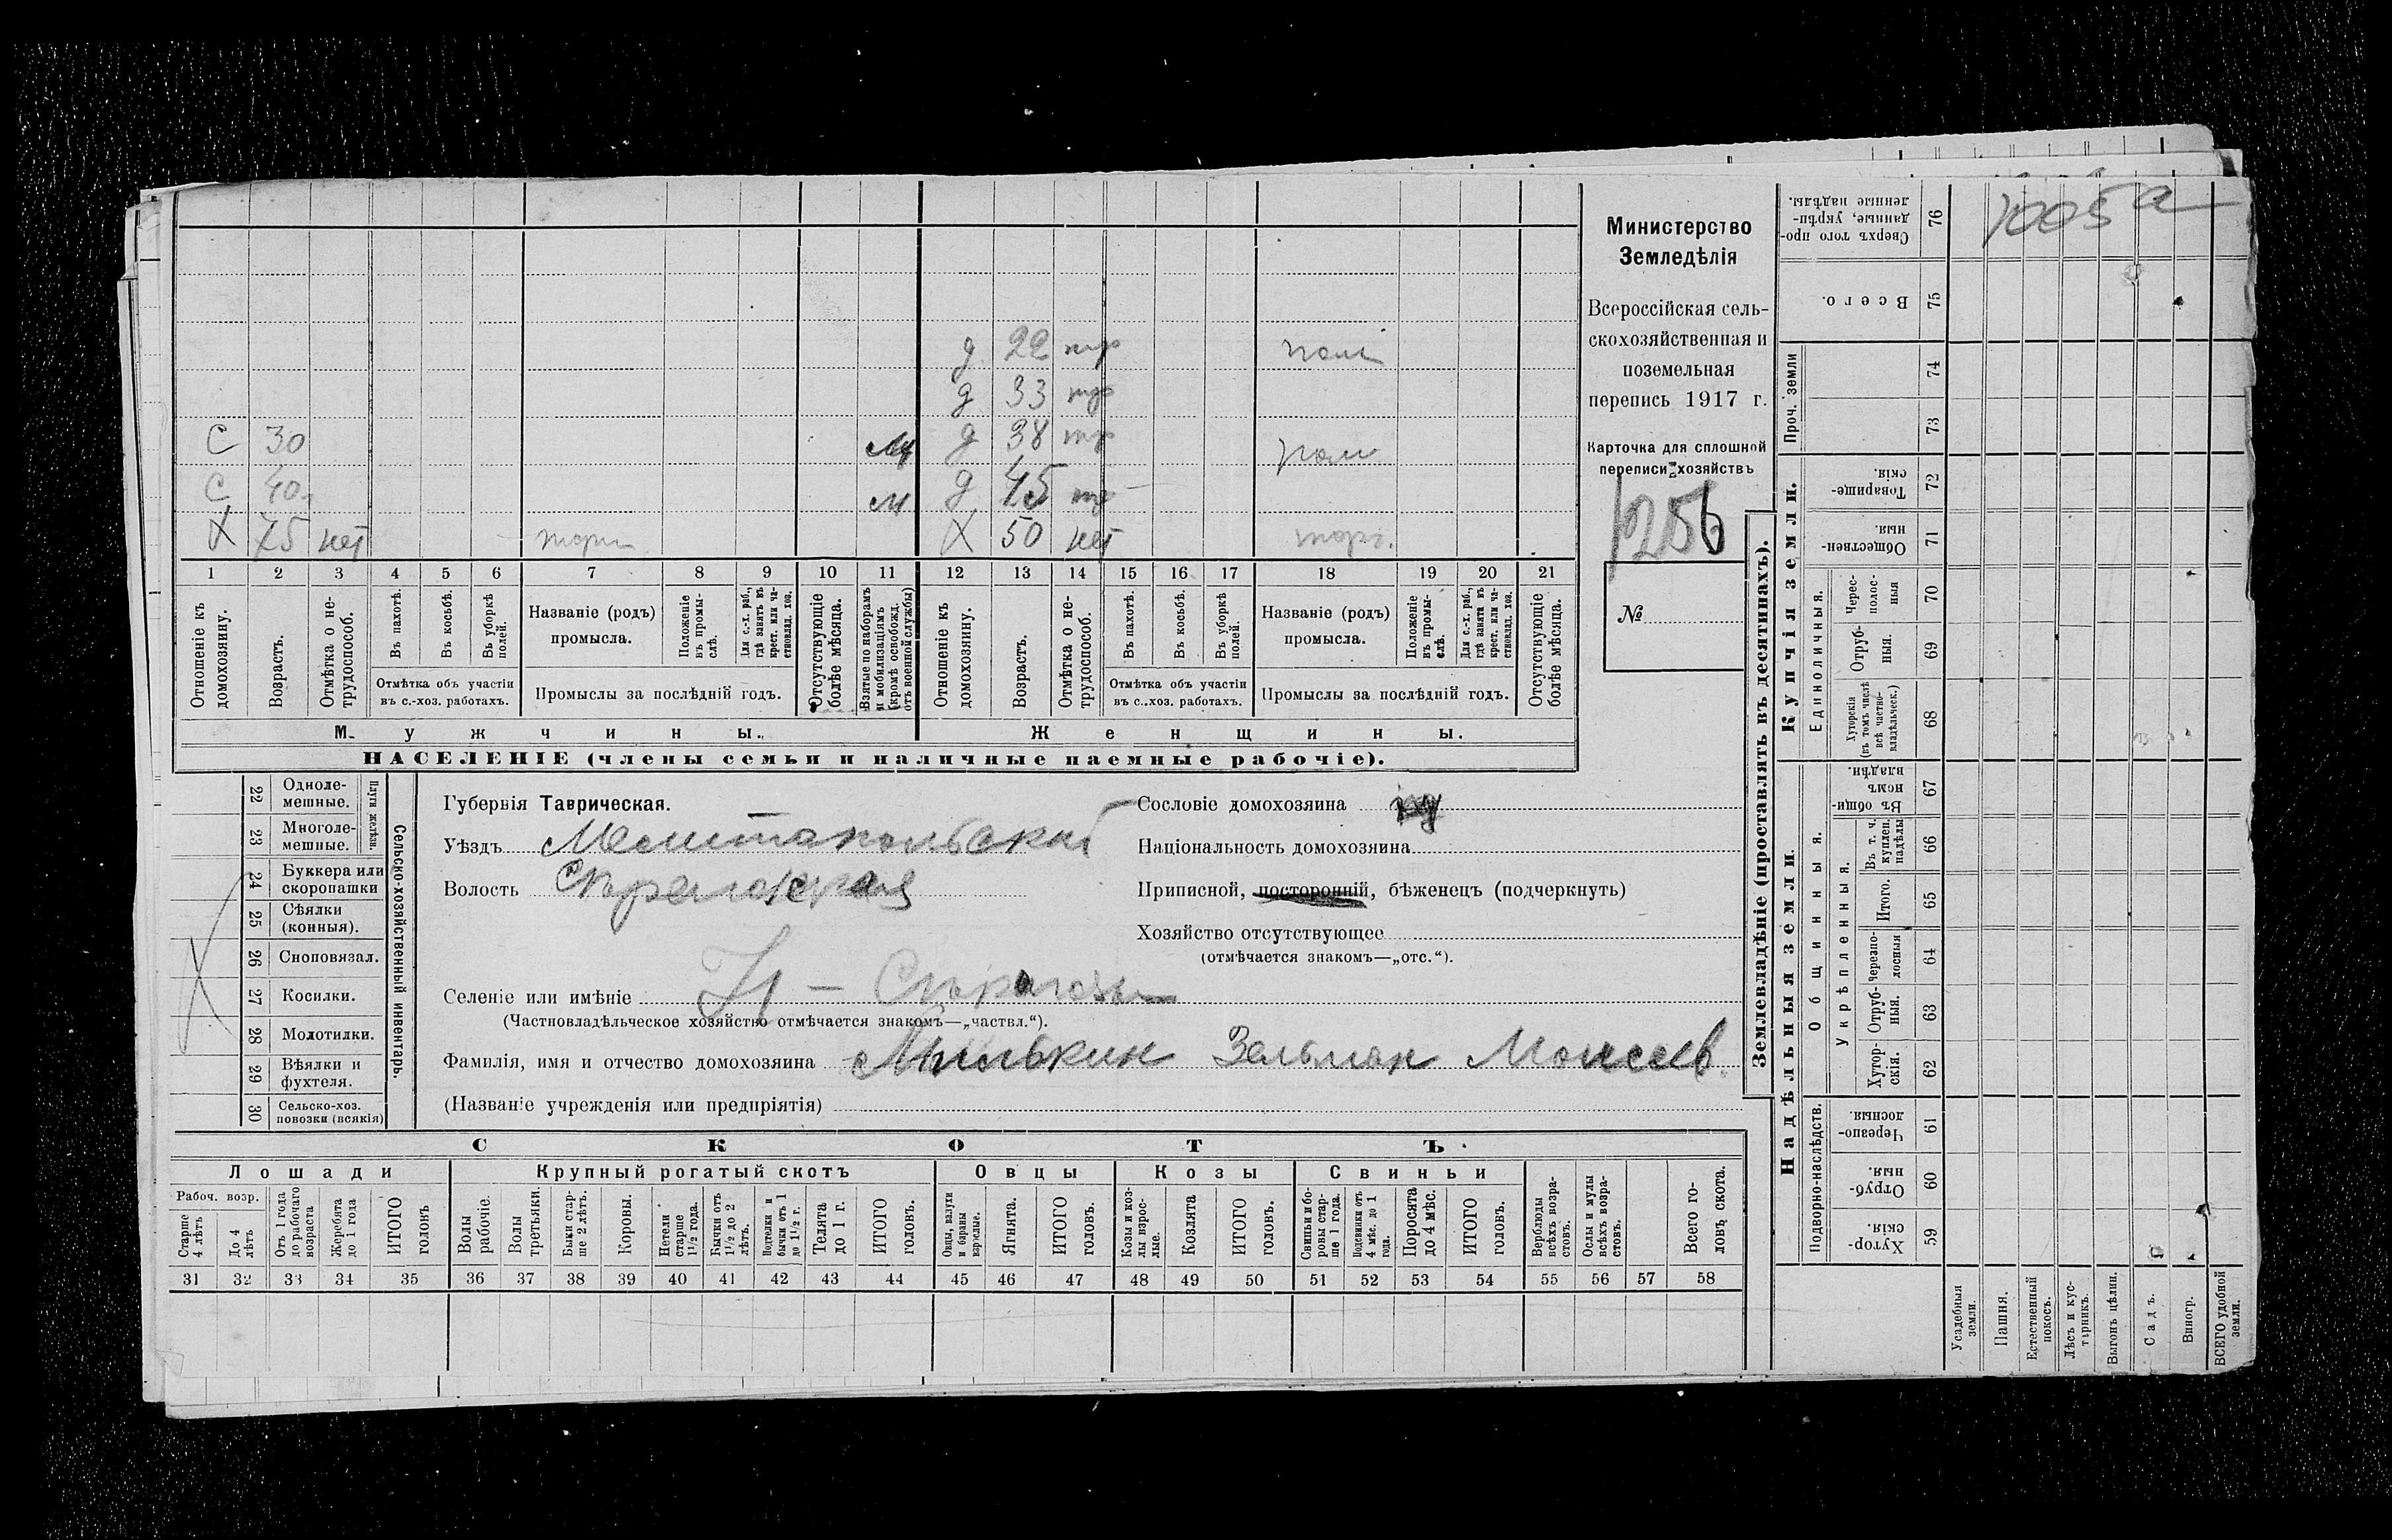 Министерство
Земледѣлія
Всероссійская сель-
скохозяйственная и
поземельная
перепись 1917 г.
Карточка для сплошной
переписи хозяйствъ
1256
№
1005а
д 22 тр
д 33 тр
С 30 м д 38 тр
С 40 м д 45 тр
Х 75 нет торг Х 50 нет торг.
1 2 3 4 5 6 7 8 9 10 11 12 13 14 15 16 17 18 19 20 21
Отношеніе къ домохозяину.
Возрастъ.
Отмѣтка о не-трудоспособ.
Въ пахотѣ.
Въ косьбѣ.
Въ уборкѣ полей.
Отмѣтка объ участіи
въ с.-хоз. работахъ.
Названіе (родъ)
промысла.
Положеніе въ промы-слѣ.
Для с.-х. раб., гдѣ занятъ въ крест. или ча-стновлад. хоз.
Промыслы за послѣдній годъ.
Отсутствующіе болѣе мѣсяца.
Взятые по наборамъ и мобилизаціямъ (кромѣ освобожд. отъ военной службы)
Отношеніе къ домохозяину.
Возрастъ.
Отмѣтка о не-трудоспособ.
Въ пахотѣ.
Въ косьбѣ.
Въ уборкѣ полей.
Отмѣтка объ участіи
въ с.-хоз. работахъ.
Названіе (родъ)
промысла.
Положеніе въ промы-слѣ.
Для с.-х. раб., гдѣ занятъ въ крест. или ча-стновлад. хоз.
Промыслы за послѣдній годъ.
Отсутствующіе болѣе мѣсяца.
Мужчины. Женщины.
НАСЕЛЕНІЕ (члены семьи и наличные наемные рабочіе).
Сельско-хозяйственный инвентарь.
Плуги желѣзн.
22 Одноле-мешные.
23 Многоле-мешные.
24 Буккера или скоропашки
25 Сѣялки (конныя).
26 Сноповязал.
27 Косилки.
28 Молотилки.
29 Вѣялки и фухтеля.
30 Сельско-хоз. повозки (всякія)
Губернія Таврическая.
Уѣздъ Мелитопольскій
Волость Сѣрагозская
Селеніе или имѣніе Н - Сѣрагозы
(Частновладѣльческое хозяйство отмѣчается знакомъ—„частвл.“).
Фамилія, имя и отчество домохозяина Зельман Моисеев.
(Названіе учрежденія или предпріятія)
Сословіе домохозяина
Національность домохозяина
Приписной, посторонній, бѣженецъ (подчеркнуть)
Хозяйство отсутствующее
(отмѣчается знакомъ—„отс.“).
СКОТЪ
Лошади Крупный рогатый скотъ Овцы Козы Свиньи
Рабоч. возр.
Старше 4 лѣтъ
До 4 лѣтъ
Отъ 1 года до рабочаго возраста
Жеребята до 1 года
ИТОГО головъ
Волы рабочіе.
Волы третьяки.
Быки стар-ше 2 лѣтъ.
Коровы.
Нетели старше 1½ года.
Бычки отъ 1½ до 2 лѣтъ.
Подтелки и бычки отъ 1 до 1½ г.
Телята до 1 г.
ИТОГО головъ.
Овцы, валухи и бараны взрослые.
Ягнята.
ИТОГО головъ.
Козы и коз-лы взрос-лые.
Козлята
ИТОГО головъ.
Свиньи и бо-ровы стар-ше 1 года.
Подсвинки отъ 4 мѣс. до 1 года.
Поросята до 4 мѣс.
ИТОГО головъ.
Верблюды всѣхъ возра-стовъ.
Ослы и мулы всѣхъ возра-стовъ.
Всего го-ловъ скота.
31 32 33 34 35 36 37 38 39 40 41 42 43 44 45 46 47 48 49 50 51 52 53 54 55 56 57 58
Землевладѣніе (проставлять въ десятинахъ).
Надѣльныя земли.
Купчія земли.
Проч. земли
Подворно-наслѣдств.
Общинныя.
Укрѣпленныя.
Единоличныя.
Сверхъ того про-данные, укрѣп-ленные надѣлы. 76
Всего. 75
74
73
Товарище-скія. 72
Обществен-ныя. 71
Черес-полос-ныя 70
Отруб-ныя. 69
Хуторскія (въ томъ числѣ всѣ частно-владѣльческ.) 68
Въ общин-номъ владѣн. 67
Въ т. ч. куплен. надѣлы 66
Итого. 65
Черезпо-лосныя 64
Отруб-ныя. 63
Хутор-скія. 62
Черезпо-лосныя. 61
Отруб-ныя. 60
Хутор-скія. 59
Усадебныя земли.
Пашня.
Естественный покосъ.
Лѣсъ и кус-тарникъ.
Выгонъ цѣлин.
Садъ.
Виногр.
ВСЕГО удобной земли.